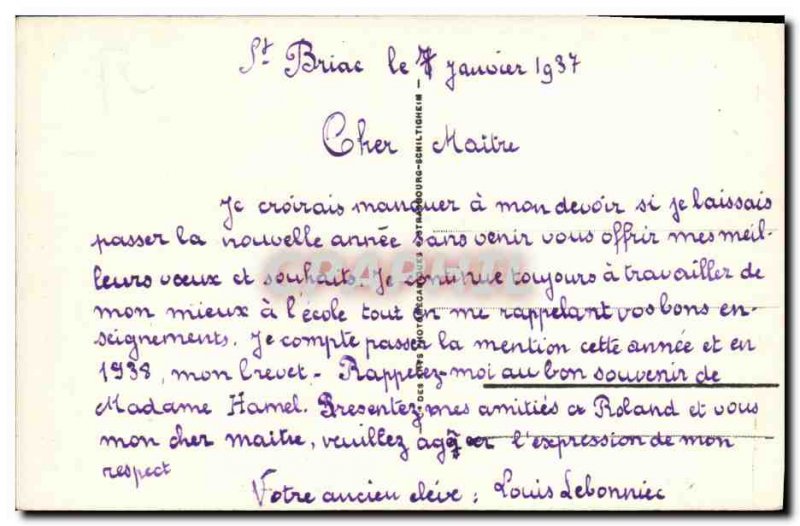 St Briac le 7 Janvier 1937
Cher Maître
Je croirais manquer à mon devoir si je laissais
passer la nouvelle année sans venir vous offrir mes meil-
leurs vœux et souhaits. Je continue toujours à travailler de
mon mieux à l'école tout en me rappelant vos bons en-
seignements. Je compte passer la mention cette année et en
1938, mon brevet - Rappelez-moi au bon souvenir de
Madame Hamel. Presentez mes amitiés a Roland et vous
mon cher maitre, veuillez l'expression de mon
respect
Votre ancien elève : Louis Lebonniec
STRASBOURG-SCHILTIGHEIM